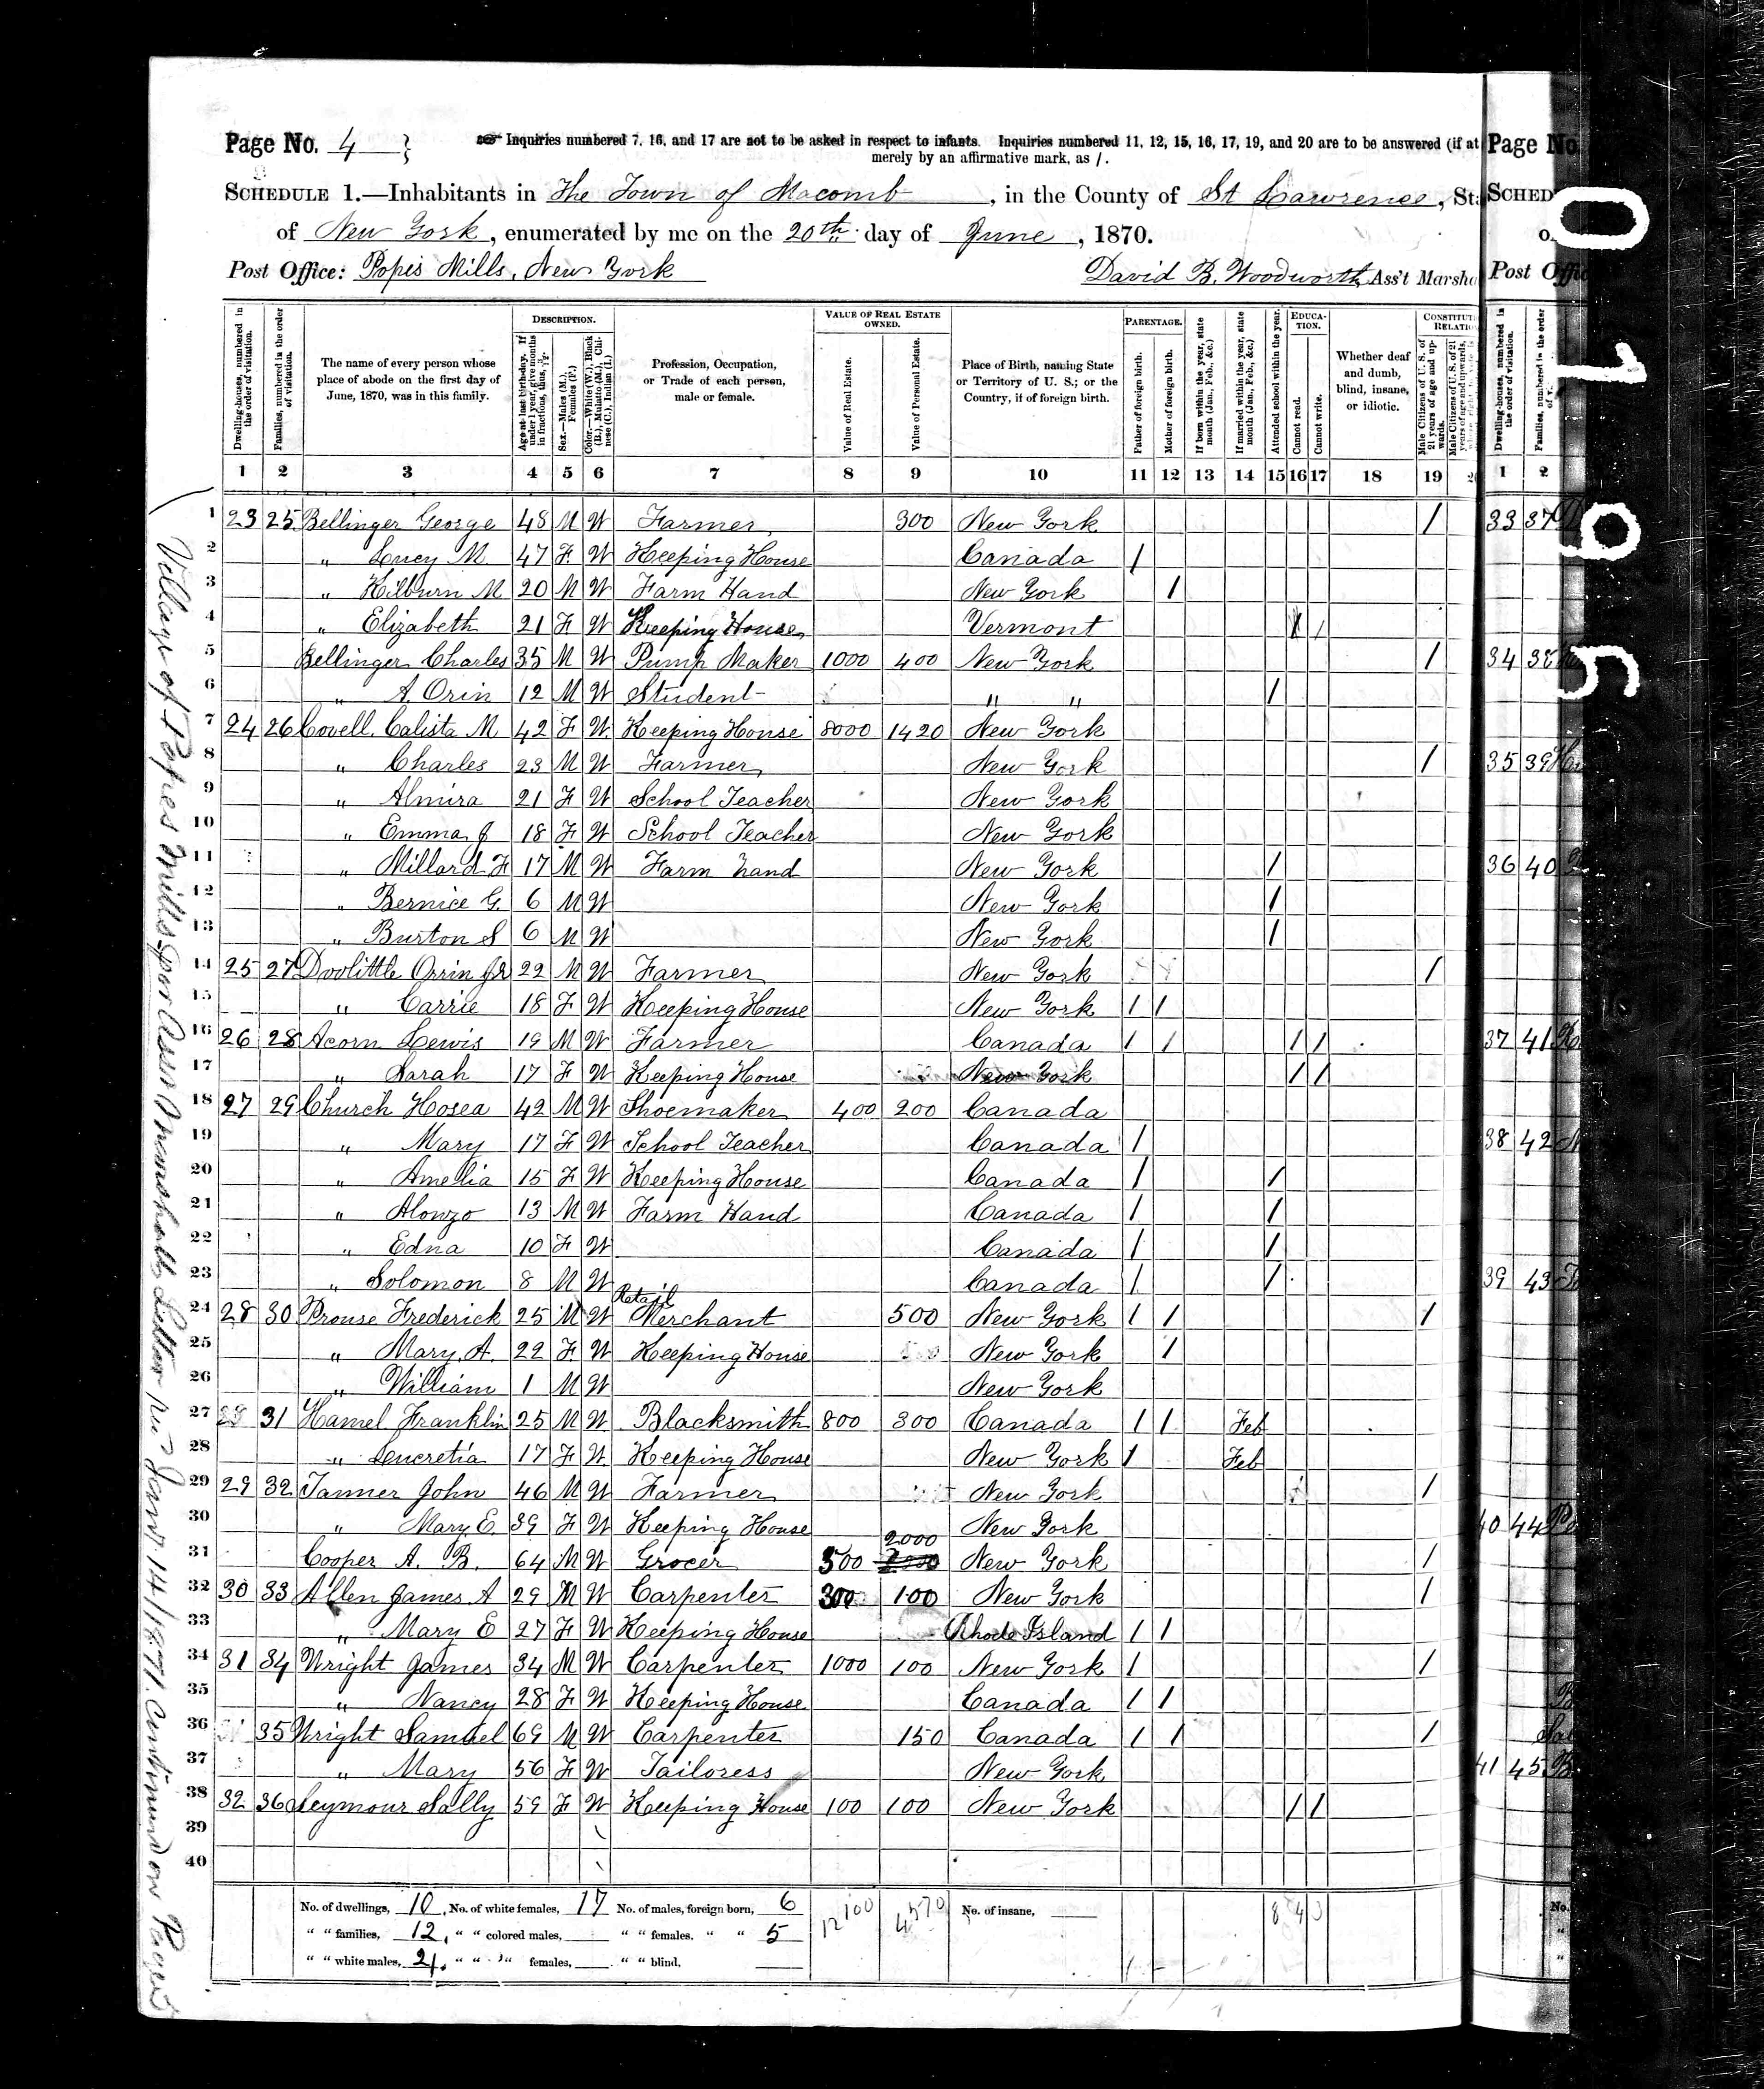 Page No. 4
Inquiries numbered 7, 16, and 17 are not to be asked in respect to infants. Inquiries numbered 11, 12, 15, 16, 17, 19, and 20 are to be answered (if at
merely by an affirmative mark, as /.
SCHEDULE 1.—Inhabitants in The Town of Macomb, in the County of St Lawrence, St
of New York, enumerated by me on the 20th day of June, 1870.
Post Office: Popes Mills, New York
David B. Woodworth, Ass't Marsha
Dwelling-houses, numbered in the order of visitation.
Families, numbered in the order of visitation.
The name of every person whose place of abode on the first day of June, 1870, was in this family.
DESCRIPTION.
Age at last birthday. If under 1 year, give months in fractions, thus, 3/12.
Sex.—Males (M.), Females (F.)
Color.—White (W.), Black (B.), Mulatto (M.), Chinese (C.), Indian (I.)
Profession, Occupation, or Trade of each person, male or female.
VALUE OF REAL ESTATE OWNED.
Value of Real Estate.
Value of Personal Estate.
Place of Birth, naming State or Territory of U. S.; or the Country, if of foreign birth.
PARENTAGE.
Father of foreign birth.
Mother of foreign birth.
If born within the year, state month (Jan., Feb., &c.)
If married within the year, state month (Jan., Feb., &c.)
Attended school within the year.
EDUCATION.
Cannot read.
Cannot write.
Whether deaf and dumb, blind, insane, or idiotic.
Male Citizens of U. S. of 21 years of age and upwards.
1 2 3 4 5 6 7 8 9 10 11 12 13 14 15 16 17 18 19
1 23 25 Bellinger George 48 M W Farmer 300 New York /
2 " Lucy M 47 F W Keeping House Canada /
3 " Kilburn M 20 M W Farm Hand New York /
4 " Elizabeth 21 F W Keeping House Vermont / /
5 Bellinger Charles 35 M W Pump Maker 1000 400 New York /
6 " A. Orin 12 M W Student " " /
7 24 26 Covell Calista M 42 F W Keeping House 8000 1420 New York
8 " Charles 23 M W Farmer New York /
9 " Almira 21 F W School Teacher New York
10 " Emma J 18 F W School Teacher New York
11 " Millard F 17 M W Farm hand New York /
12 " Bernice G. 6 M W New York /
13 " Burton S 6 M W New York /
14 25 27 Doolittle Orrin Jr 22 M W Farmer New York /
15 " Carrie 18 F W Keeping House New York / /
16 26 28 Acorn Lewis 19 M W Farmer Canada / / / /
17 " Sarah 17 F W Keeping House New York / /
18 27 29 Church Hosea 42 M W Shoemaker 400 200 Canada
19 " Mary 17 F W School Teacher Canada /
20 " Amelia 15 F W Keeping House Canada / /
21 " Alonzo 13 M W Farm Hand Canada / /
22 " Edna 10 F W Canada / /
23 " Solomon 8 M W Canada / /
24 28 30 Prouse Frederick 25 M W Retail Merchant 500 New York / / /
25 " Mary A. 22 F W Keeping House New York /
26 " William 1 M W New York
27 31 Hamel Franklin 25 M W Blacksmith 800 300 Canada / / Feb
28 " Lucretia 17 F W Keeping House New York / Feb
29 29 32 Tanner John 46 M W Farmer New York /
30 " Mary E 39 F W Keeping House New York
31 Cooper A. B. 64 M W Grocer 500 2000 New York /
32 30 33 Allen James A 29 M W Carpenter 300 100 New York /
33 " Mary E 27 F W Keeping House Rhode Island / /
34 31 34 Wright James 34 M W Carpenter 1000 100 New York / /
35 " Nancy 28 F W Keeping House Canada / /
36 35 Wright Samuel 69 M W Carpenter 150 Canada / / /
37 " Mary 56 F W Tailoress New York
38 32 36 Seymour Sally 59 F W Keeping House 100 100 New York / /
39
40
No. of dwellings, 10, No. of white females, 17 No. of males, foreign born, 6 12100 4570 No. of insane, 8 4 3
" " families, 12, " " colored males, " " females, " " 5
" " white males, 21, " " " females, " " blind,
Village of Popes Mills per Assn Marshalls Letter Jany 14/1871. Continued on
Page No.
SCHED
Post Offic
1 2
33 37
34 38
35 39
36 40
37 41
38 42
39 43
40 44
41 45
01965